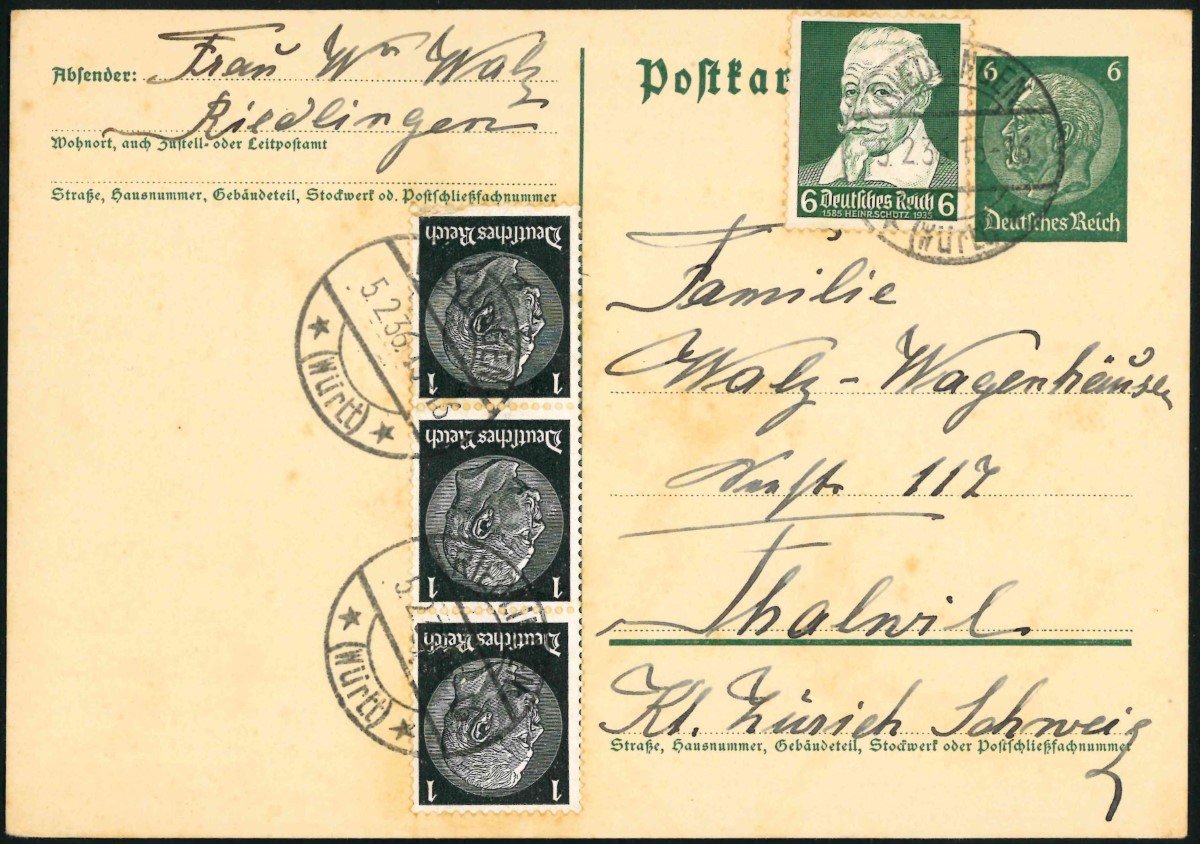 Absender: Frau Wn Walz
Riedlingen
Wohnort, auch Zustell- oder Leitpostamt
Straße, Hausnummer, Gebäudeteil, Stockwerk od. Postschließfachnummer
Deutsches Reich
1 1
Deutsches Reich
1 1
Deutsches Reich
1 1
5.2.36
★ (Württ) ★
★ (Württ) ★
Postkar
6 Deutsches Reich 6
1585 HEINR.SCHÜTZ 1935
6 6
Deutsches Reich
Familie
Walz - Wagenhäuser
117
Thalwil
Kt. Zürich Schweiz
Straße, Hausnummer, Gebäudeteil, Stockwerk oder Postschließfachnummer